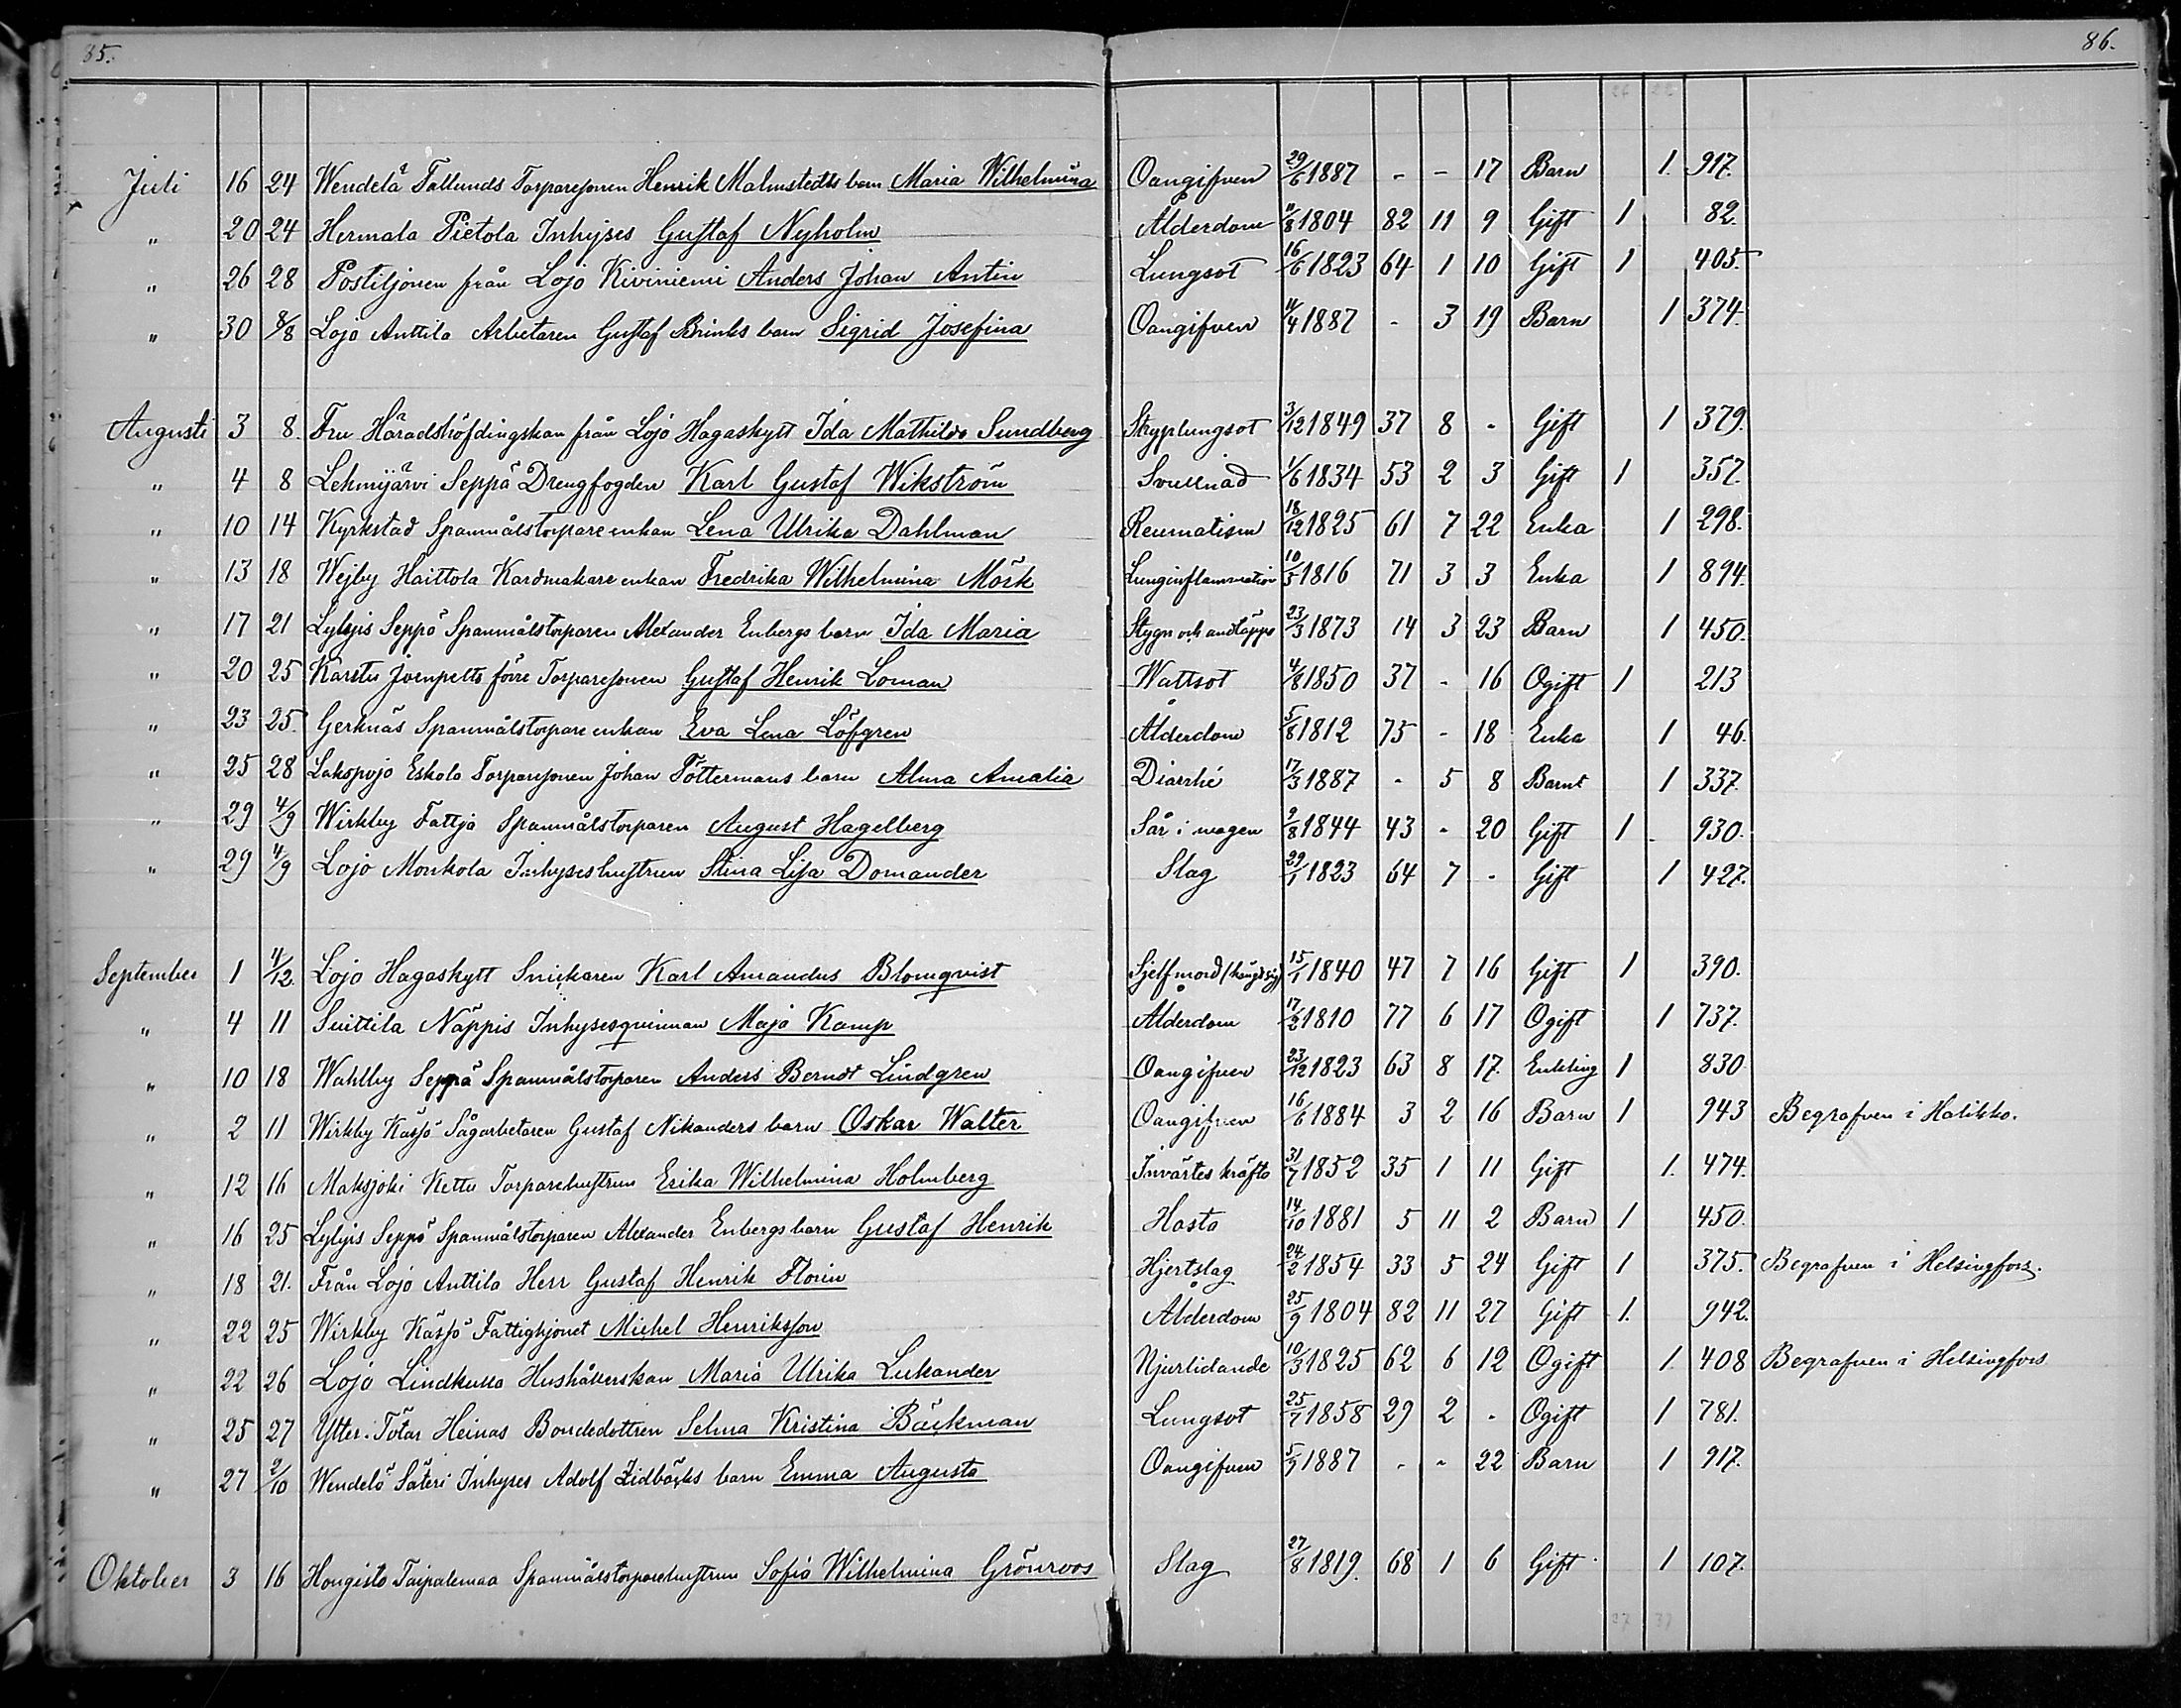 85. 86.
Juli 16 24 Wendelä Tallunds Torparesonen Henrik Malmstedts barn Maria Wilhelmina Oangifven 29/6 1887 - - 17 Barn 1. 917.
" 20 24 Hermala Pietola Inhyses Gustaf Nyholm Ålderdom 11/8 1804 82 11 9 Gift 1 82.
" 26 28 Postiljonen från Lojo Kiviniemi Anders Johan Antin Lungsot 16/6 1823 64 1 10 Gift 1 405.
" 30 8/8 Lojo Anttila Arbetaren Gustaf Brinks barn Sigrid Josefina Oangifven 11/4 1887 - 3 19 Barn 1 374.
Augusti 3 8. Fru Häradshöfdingskan från Lojo Hagaskytt Ida Mathilda Sundberg Skryplungsot 3/12 1849 37 8 - Gift 1 379.
" 4 8 Lehmijärvi Seppä Drengfogden Karl Gustaf Wikström Svullnad 1/6 1834 53 2 3 Gift 1 357.
" 10 14 Kyrkstad Spanmålstorpare enkan Lena Ulrika Dahlman Reumatism 18/12 1825 61 7 22 Enka 1 298.
" 13 18 Wejby Haittola Kardmakare enkan Fredrika Wilhelmina Mörk Lunginflammation 10/5 1816 71 3 3 Enka 1 894.
" 17 21 Lylyis Seppä Spanmålstorparen Alexander Enbergs barn Ida Maria Stygn och andtäppa 23/3 1873 14 3 23 Barn 1 450.
" 20 25 Karstu Joenpelto förre Torparesonen Gustaf Henrik Loman Wattsot 4/8 1850 37 - 16 Ogift 1 213
" 23 25. Gerknäs Spanmålstorpare enkan Eva Lena Löfgren Ålderdom 5/8 1812 75 - 18 Enka 1 46.
" 25 28 Lakspojo Eskola Torparesonen Johan Töttermans barn Alma Amalia Diarrhé 17/3 1887 - 5 8 Barn 1 337.
" 29 4/9 Wirkby Fattja Spanmålstorparen August Hagelberg Sår i magen 9/8 1844 43 - 20 Gift 1 930.
" 29 4/9 Lojo Monkola Inhyseshustrun Stina Lisa Domander Slag 29/1 1823 64 7 - Gift 1 427.
September 1 4/12. Lojo Hagaskytt Snickaren Karl Amandus Blomqvist Sjelfmord (hängd sig) 15/1 1840 47 7 16 Gift 1 390.
" 4 11 Suittila Näppis Inhysesqvinnan Maja Kamp Ålderdom 17/2 1810 77 6 17 Ogift 1 737.
" 10 18 Wahlby Seppä Spanmålstorparen Anders Berndt Lindgren Oangifven 23/12 1823 63 8 17. Enkling 1 830
" 2 11 Wirkby Kässä Sågarbetaren Gustaf Nikanders barn Oskar Walter Oangifven 16/6 1884 3 2 16 Barn 1 943 Begrafven i Halikko.
" 12 16 Maksjoki Kettu Torparehustrun Erika Wilhelmina Holmberg Invärtes kräfta 31/7 1852 35 1 11 Gift 1. 474.
" 16 25 Lylyis Seppä Spanmålstorparen Alexander Enbergs barn Gustaf Henrik Hosta 14/10 1881 5 11 2 Barn 1 450.
" 18 21. Från Lojo Anttila Herr Gustaf Henrik Florin Hjertslag 24/2 1854 33 5 24 Gift 1 375. Begrafven i Helsingfors.
" 22 25 Wirkby Kässä Fattighjonet Michel Henriksson Ålderdom 25/9 1804 82 11 27 Gift 1. 942.
" 22 26 Lojo Lindkulla Hushållerskan Maria Ulrika Lukander Njurlidande 10/3 1825 62 6 12 Ogift 1. 408 Begrafven i Helsingfors
" 25 27 Ytter-Tötar Heinas Bondedottren Selma Kristina Bäckman Lungsot 25/7 1858 29 2 - Ogift 1 781.
" 27 2/10 Wendelä Säteri Inhyses Adolf Lidbäcks barn Emma Augusta Oangifven 5/9 1887 - - 22 Barn 1 917.
Oktober 3 16 Hongisto Taipalemaa Spanmålstorparehustrun Sofia Wilhelmina Grönroos Slag 27/8 1819. 68 1 6 Gift 1 107.